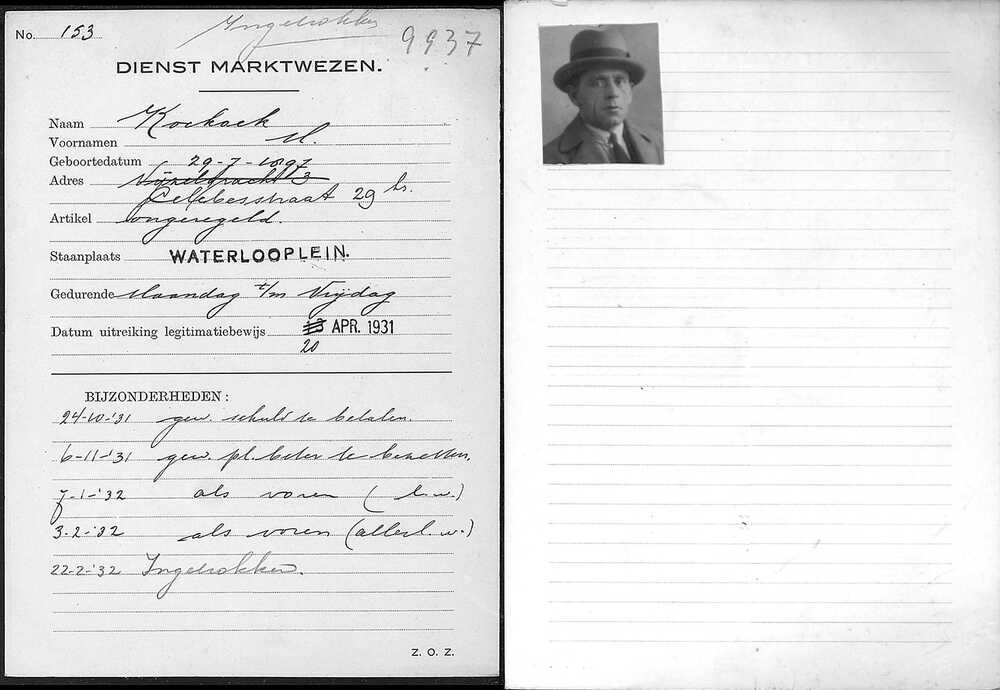 Ingetrokken
No. 153
9937
DIENST MARKTWEZEN.
Naam Koekoek
Voornamen M.
Geboortedatum 29-7-1897
Adres Vijzelgracht 3
Celebesstraat 29 hs.
Artikel ongeregeld.
Staanplaats WATERLOOPLEIN.
Gedurende Maandag t/m Vrijdag
Datum uitreiking legitimatiebewijs 13 APR. 1931
20
BIJZONDERHEDEN:
24-10-'31 gew. schuld te betalen.
6-11-'31 gew. pl. beter te bezetten.
7-1-'32 als voren (l.w.)
3-2-'32 als voren (allerl. w.)
22-2-'32 Ingetrokken.
Z. O. Z.